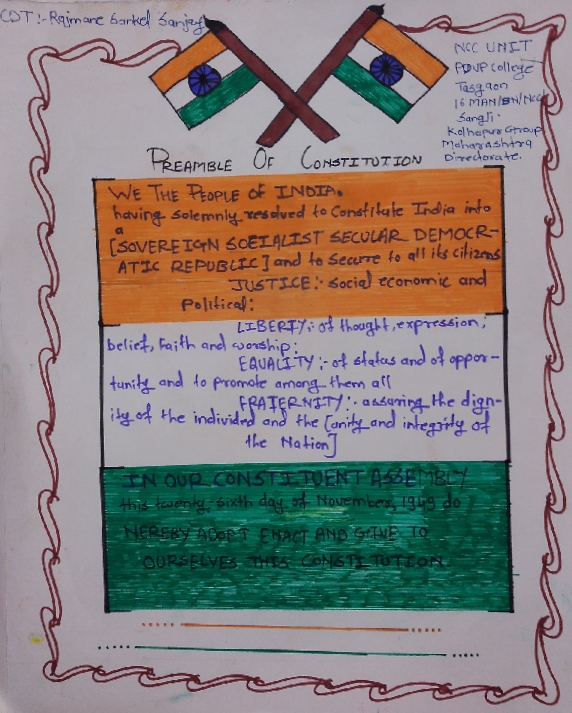 CDT :- Rajmane Sanket Sanjay
NCC UNIT
PDVP College
Tasgaon
16 MAH/BN/NCC
Sangli.
Kolhapur Group
Maharashtra
Directorate.
PREAMBLE OF CONSTITUTION
WE THE PEOPLE OF INDIA.
having solemnly resolved to Constitute India into
a
[SOVEREIGN SOCIALIST SECULAR DEMOCR-
ATIC REPUBLIC] and to Secure to all its citizens
JUSTICE:- Social economic and
Political:
LIBERTY:- of thought, expression,
belief, Faith and worship:
EQUALITY:- of status and of oppor-
tunity and to promote among them all
FRATERNITY:- assuring the dign-
ity of the individed and the [unity and integrity of
the Nation]
IN OUR CONSTITUENT ASSEMBLY
this twenty, sixth day of November, 1949 do
HEREBY ADOPT ENACT AND GIVE TO
OURSELVES THIS CONSTITUTION.